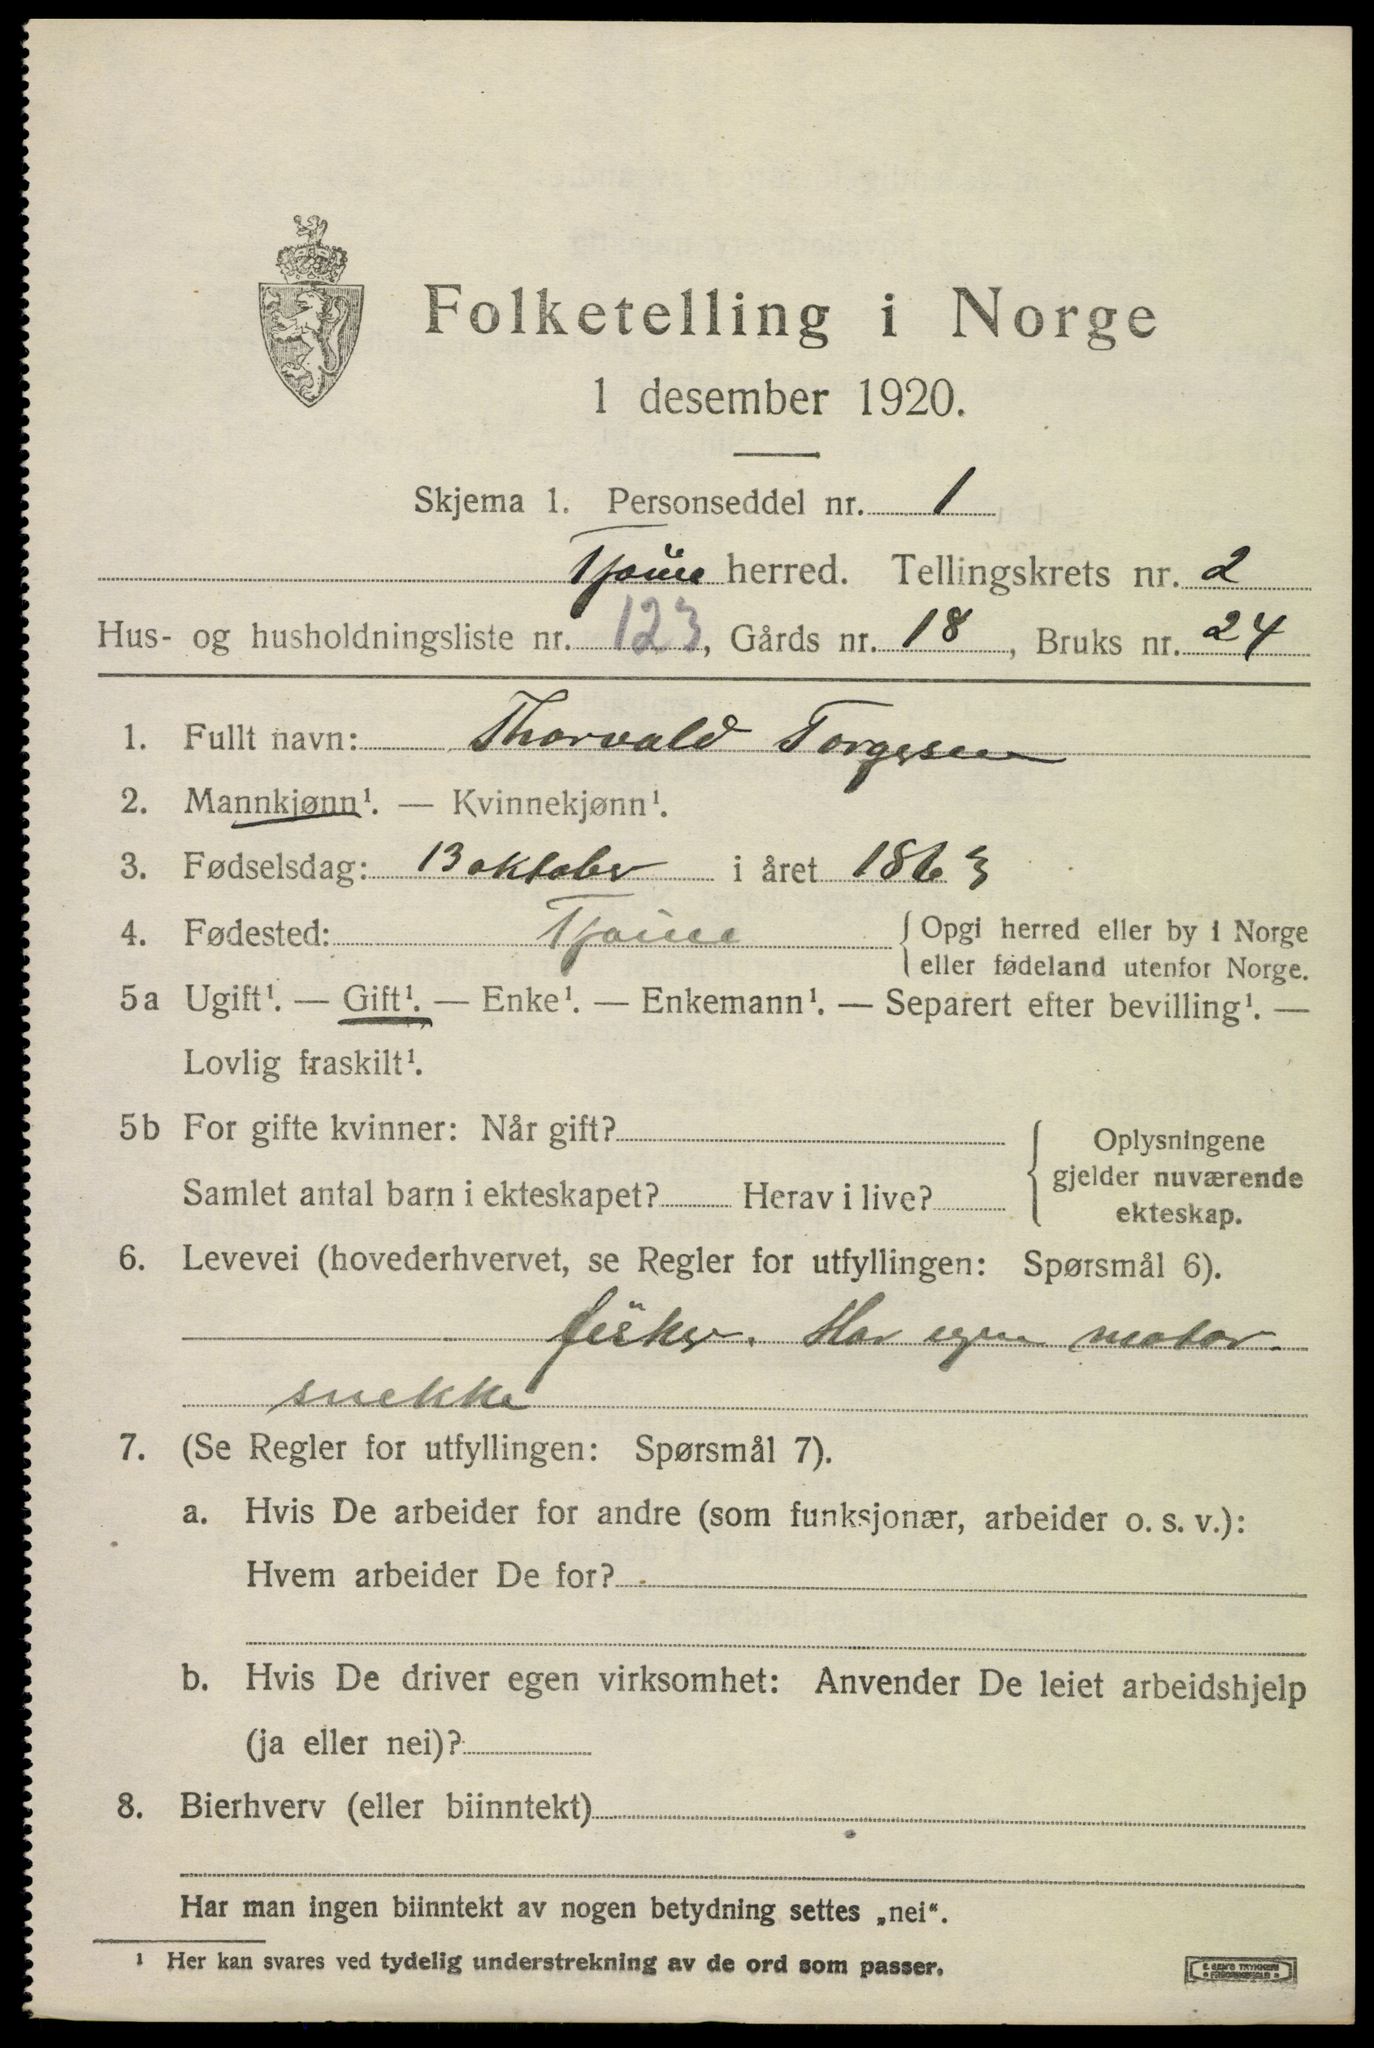 Folketelling i Norge
1 desember 1920.
Skjema 1. Personseddel nr. 1
Tjøme herred. Tellingskrets nr. 2
Hus- og husholdningsliste nr. 123, Gårds nr. 18, Bruks nr. 24
1. Fullt navn: Thorvald Torgesen
2. Mannkjønn¹. — Kvinnekjønn¹.
3. Fødselsdag: 13 oktober i året 1863
4. Fødested: Tjøme { Opgi herred eller by i Norge
eller fødeland utenfor Norge.
5a Ugift¹. — Gift¹. — Enke¹. — Enkemann¹. — Separert efter bevilling¹. —
Lovlig fraskilt¹.
5b For gifte kvinner: Når gift?
Samlet antal barn i ekteskapet? Herav i live?
Oplysningene
gjelder nuværende
ekteskap.
6. Levevei (hovederhvervet, se Regler for utfyllingen: Spørsmål 6).
fisker. Har egen motor-
snekke
7. (Se Regler for utfyllingen: Spørsmål 7).
a. Hvis De arbeider for andre (som funksjonær, arbeider o. s. v.):
Hvem arbeider De for?
b. Hvis De driver egen virksomhet: Anvender De leiet arbeidshjelp
(ja eller nei)?
8. Bierhverv (eller biinntekt)
Har man ingen biinntekt av nogen betydning settes „nei“.
¹ Her kan svares ved tydelig understrekning av de ord som passer.